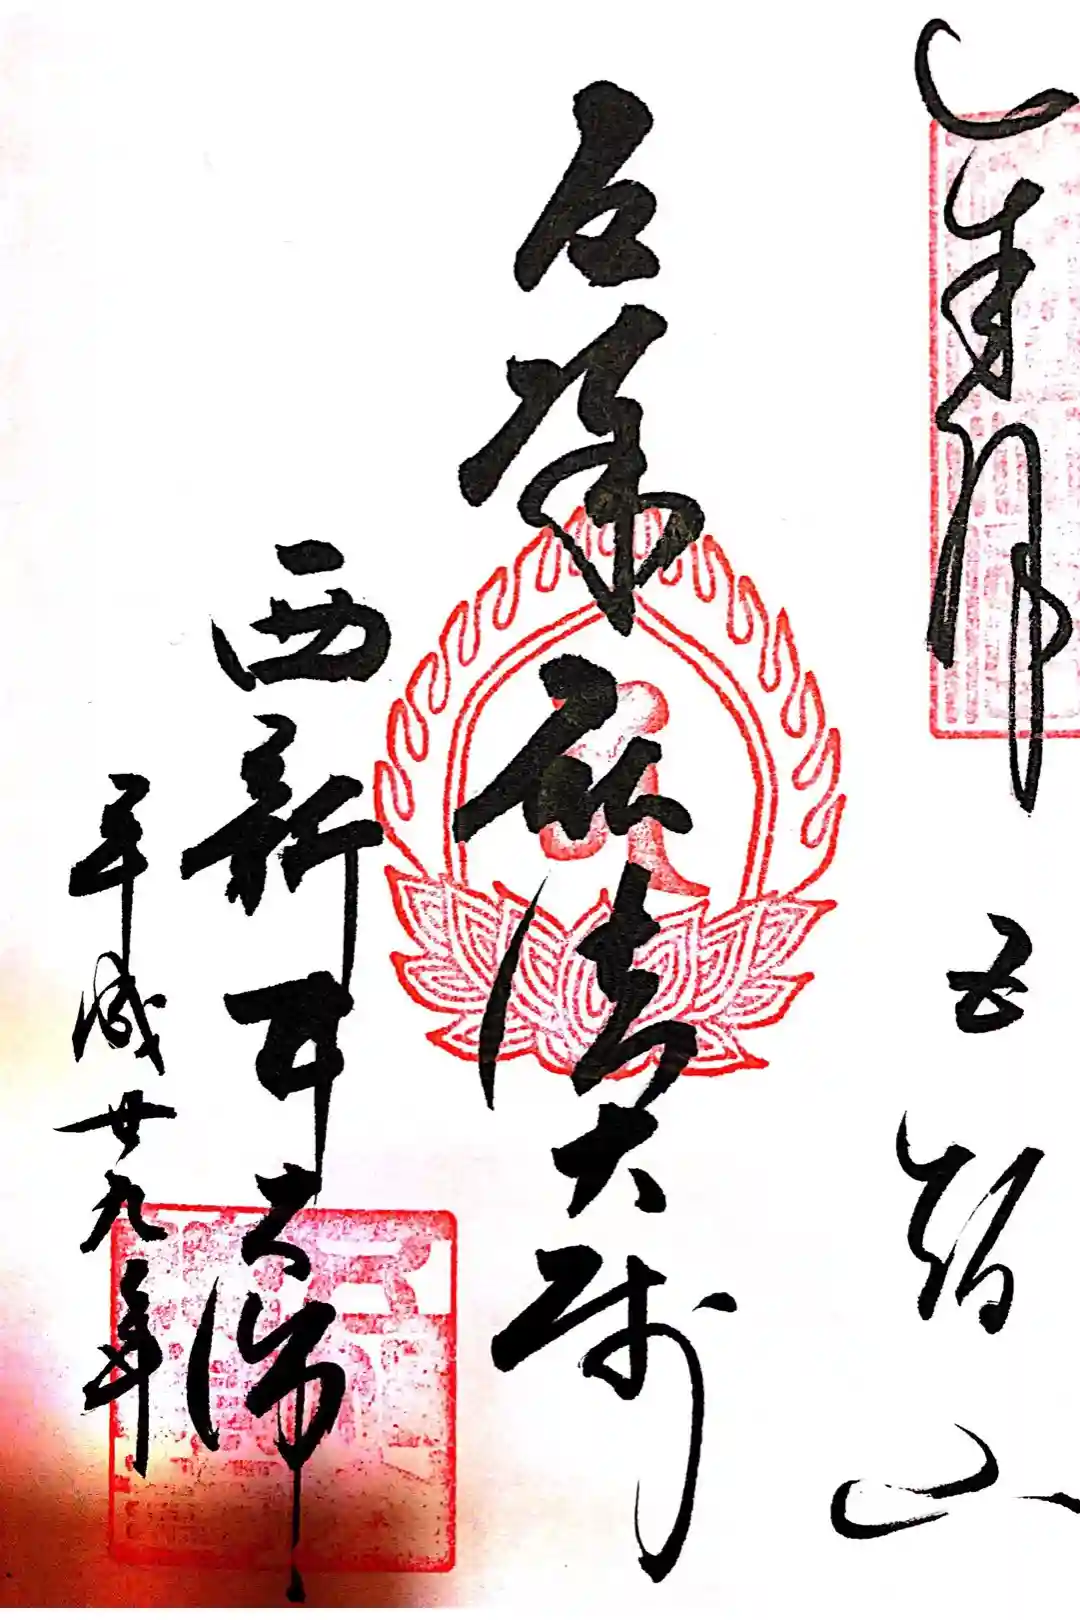 奉拝 五智山
厄除弘法大師
西新井大師
平成廿九年